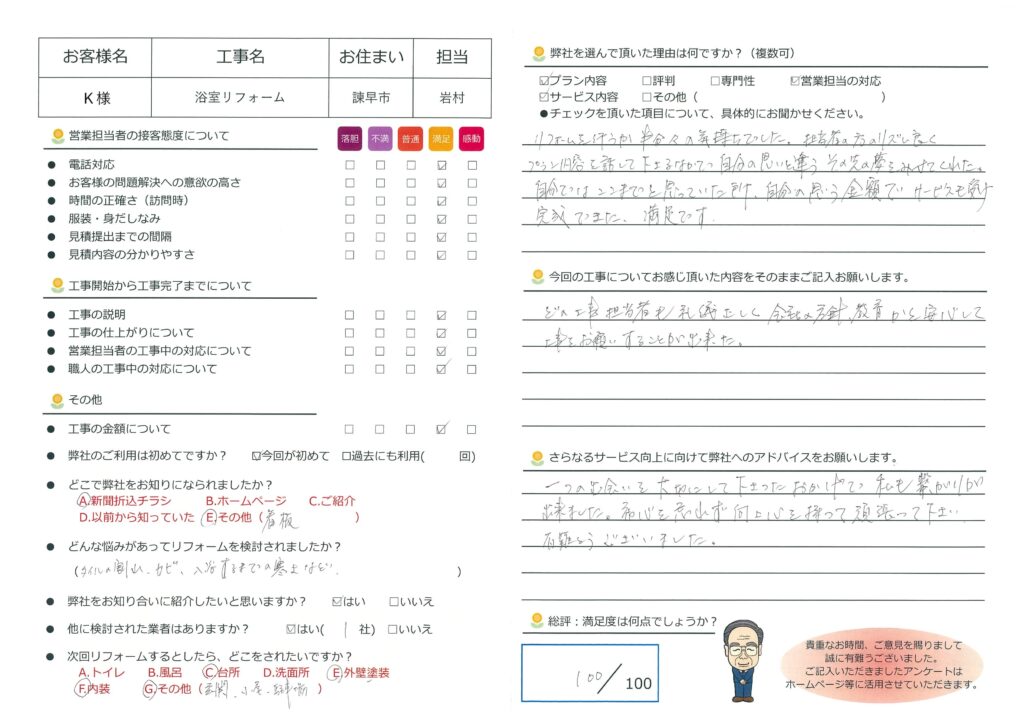 お客様名 工事名 お住まい 担当
K様 浴室リフォーム 諫早市 岩村
営業担当者の接客態度について 落胆 不満 普通 満足 感動
● 電話対応 □ □ □ ☑ □
● お客様の問題解決への意欲の高さ □ □ □ ☑ □
● 時間の正確さ（訪問時） □ □ □ ☑ □
● 服装・身だしなみ □ □ □ ☑ □
● 見積提出までの間隔 □ □ □ ☑ □
● 見積内容の分かりやすさ □ □ □ ☑ □
工事開始から工事完了までについて
● 工事の説明 □ □ □ ☑ □
● 工事の仕上がりについて □ □ □ ☑ □
● 営業担当者の工事中の対応について □ □ □ ☑ □
● 職人の工事中の対応について □ □ □ ☑ □
その他
● 工事の金額について □ □ □ ☑ □
● 弊社のご利用は初めてですか？ ☑今回が初めて □過去にも利用( 回)
● どこで弊社をお知りになられましたか？
A.新聞折込チラシ B.ホームページ C.ご紹介
D.以前から知っていた E.その他（看板 ）
● どんな悩みがあってリフォームを検討されましたか？
（タイルの割れ、カビ、入浴するまでの寒さなど. ）
● 弊社をお知り合いに紹介したいと思いますか？ ☑はい □いいえ
● 他に検討された業者はありますか？ ☑はい( 1 社) □いいえ
● 次回リフォームするとしたら、どこをされたいですか？
A.トイレ B.風呂 C.台所 D.洗面所 E.外壁塗装
F.内装 G.その他（玄関、 ）
弊社を選んで頂いた理由は何ですか？（複数可）
☑プラン内容 □評判 □専門性 ☑営業担当の対応
☑サービス内容 □その他（ ）
●チェックを頂いた項目について、具体的にお聞かせください。
リフォームを行うか半々の気持ちでした。担当者の方のリズム良く
プラン内容を話して下さるなかで自分の思いと違う その先の夢をみせてくれた。
自分ではここまでと思っていたのが、自分の思う金額で サービスも
完成できた、満足です.
今回の工事についてお感じ頂いた内容をそのままご記入お願いします。
どの工事担当者も礼儀正しく 会社の方針、教育から安心して
工事をお願いすることが出来た。
さらなるサービス向上に向けて弊社へのアドバイスをお願いします。
一つの出会いを大切にして下さったおかげで 私も繋がりが
出来ました。初心を忘れず向上心を持って頑張って下さい.
有難うございました。
総評：満足度は何点でしょうか？
100/100
貴重なお時間、ご意見を賜りまして
誠に有難うございました。
ご記入いただきましたアンケートは
ホームページ等に活用させていただきます。